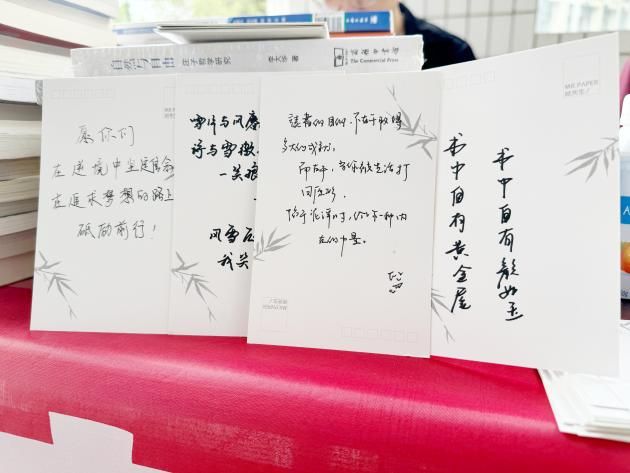 自然与自由 庄子哲学研究 李大华 著
商务印书馆
The Commercial Press
愿你们
在逆境中坚定信念
在追求梦想的路上
砥励前行！
一笑
风雪压
我笑
读书的目的，不在于取得
多大的成就，
而在于，当你被生活打
回原形，
陷于泥潭时，给你一种内
在的力量。
MR.PAPER
纸先生
书中自有颜如玉
书中自有黄金屋